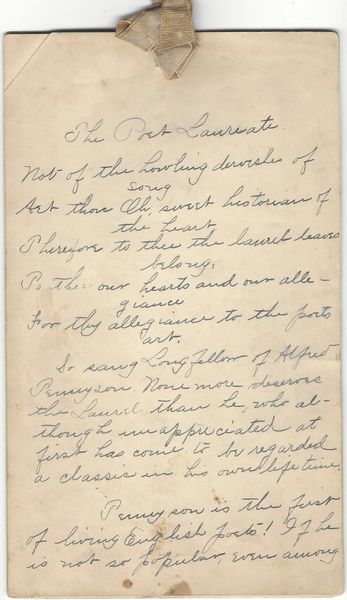 The Poet Laureate.
Not of the howling dervishes of
song
Art thou Oh, sweet historian of
the heart
Therefore to thee the laurel leaves
belong,
To thee our hearts and our alle-
giance
For thy allegiance to the poets
art.
So sang Longfellow of Alfred
Tennyson. None more deserves
the Laurel than he, who al-
though unappreciated at
first has come to be regarded
a classic in his own life time.
Tennyson is the first
of living English poets! If he
is not so popular, even among